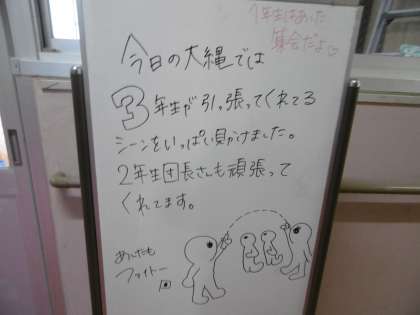 1年生はあった
集会だよ♡
今日の大縄では
3年生が引っ張ってくれてる
シーンをいっぱい見かけました。
2年生団長さんも頑張って
くれてます。
あんたも
ファイトー